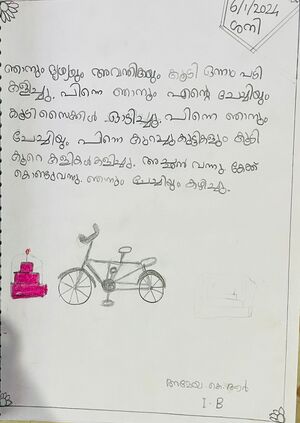 6/1/2024
ശനി
ഞാനും ഋഭ്യയും അവന്തികയും കൂടി ഒന്നാം പടി
കളിച്ചു. പിന്നെ ഞാനും എന്റെ ചേച്ചിയും
കൂടി സൈക്കിൾ ഓടിച്ചു. പിന്നെ ഞാനും
ചേച്ചിയും പിന്നെ കുറച്ചു കുട്ടികളും കൂടി
കുറെ കളികൾ കളിച്ചു. അച്ഛൻ വന്നു. കേക്ക്
കൊണ്ടുവന്നു. ഞാനും ചേച്ചിയും കഴിച്ചു.
അമേയ കെ.ആർ
I-B